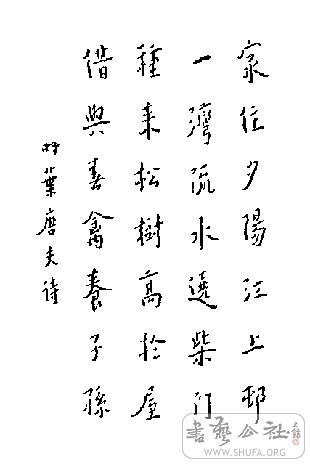 家住夕陽江上邨
一灣流水遶柴門
種来松樹高於屋
借與春禽養子孫
葉唐夫诗
書藝公社
WWW.SHUFA.ORG